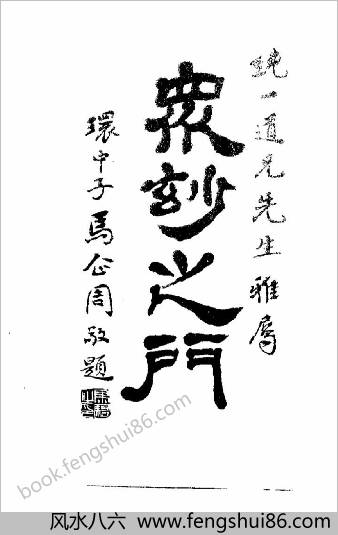 純一道兄先生雅屬
衆玅之門
環中子馬企周敬題
book.fengshui86.com
风水八六 www.fengshui86.com